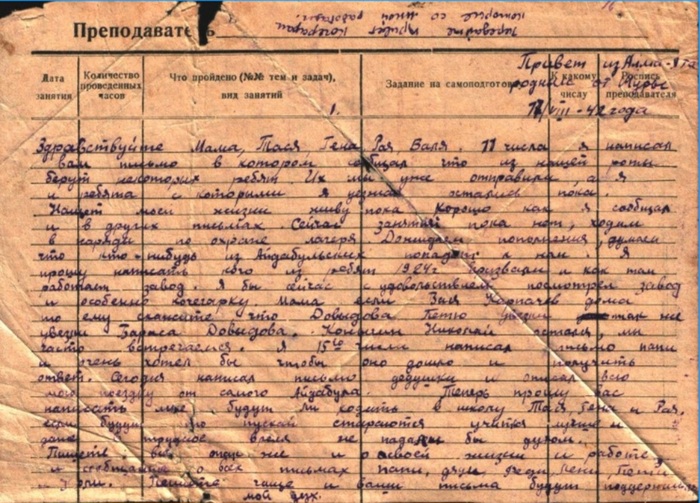 передайте привет кочегарам
которые со мной работали.
Преподаватель
Привет из Алма-Ата
родные от Юрия
Дата занятия
Количество проведенных часов
Что пройдено (№№ тем и задач), вид занятий
Задание на самоподготовку
К какому числу
Роспись преподавателя
1.
17/VIII-42 года
Здравствуйте Мама, Тася Гена Рая Валя. 11 числа я написал
вам письмо в котором сообщал что из нашей роты
берут некоторых ребят Их уже отправили а я
и ребята с которыми я уезжал остались пока.
Насчет моей жизни живу пока хорошо как я сообщал
и в других письмах. Сейчас занятий пока нет, ходим
в наряды по охране лагеря. Дожидаем пополнения, думаем
что кто-нибудь из Айдабульских попадет к нам. Я
прошу написать кого из ребят 1924г призвали и как там
работает завод. Я бы сейчас с удовольствием посмотрел завод
и особенно кочегарку Мама если Карпачев дома
то ему скажите что Довыдова Петю увезли так же
увезли Довыдова. Николай остался, мы
часто встречаемся. Я 15го числа написал письмо папи
и очень хотел бы чтобы оно дошло и получить
ответ. Сегодня написал письмо дедушки и описал всю
мою поездку от самого Айдабула. Теперь прошу вас
написать мне будут ли ходить в школу Тася, Гена и Рая,
если будут то пускай стараются учиться лучше и
даже трудное время не падали бы духом.
Пишите о своей жизни и работе,
и сообщайте о всех письмах папи, дяди
и Пишите чаще и ваши письма будут поддерживать
мой дух.